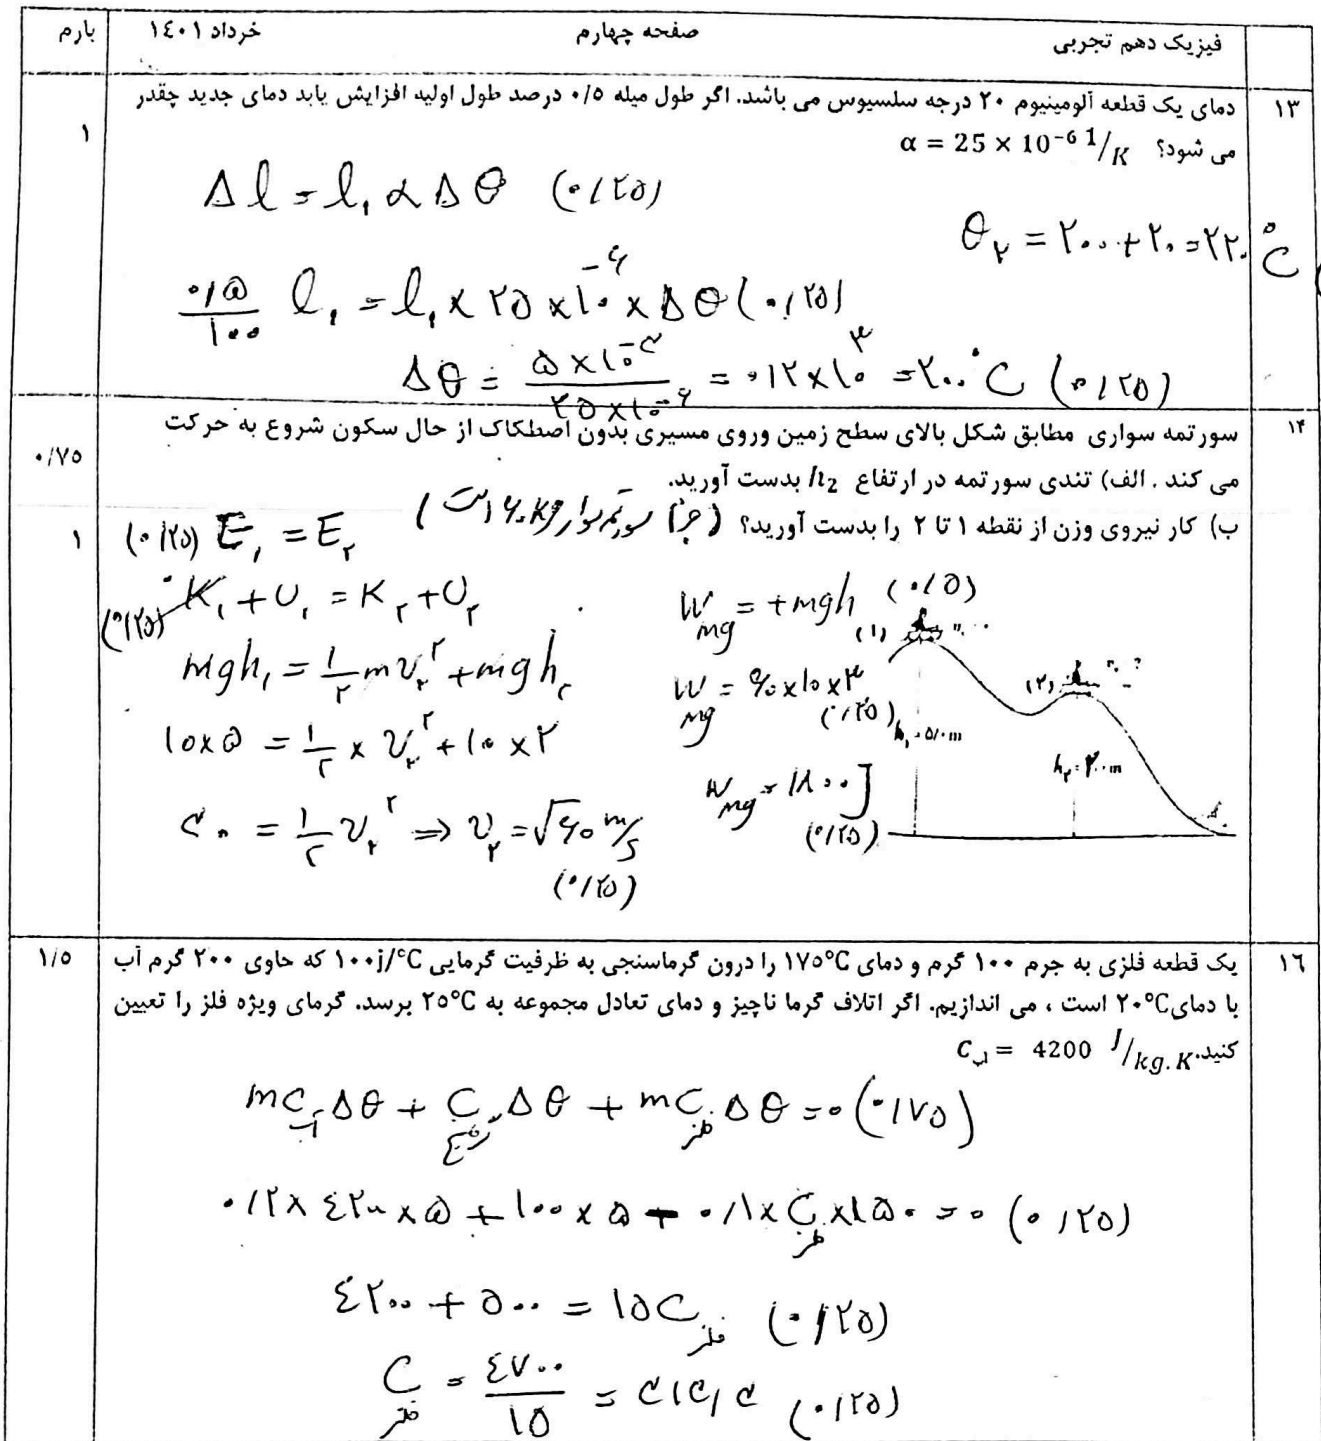 فیزیک دهم تجربی صفحه چهارم خرداد ۱٤۰۱ بارم
۱۳ دمای یک قطعه آلومینیوم ۲۰ درجه سلسیوس می باشد. اگر طول میله ۰/۵ درصد طول اولیه افزایش یابد دمای جدید چقدر
۱
می شود؟ α = 25 × 10⁻⁶ 1/K
Δl = l₁ α Δθ (۰/۲۵)
θ₂ = ۲۰۰ + ۲۰ = ۲۲۰ °C
۰/۵/۱۰۰ l₁ = l₁ × ۲۵ × ۱۰⁻⁶ × Δθ (۰/۲۵)
Δθ = ۵×۱۰⁻³/۲۵×۱۰⁻⁶ = ۰/۲×۱۰³ = ۲۰۰°C (۰/۲۵)
۱۴ سورتمه سواری مطابق شکل بالای سطح زمین وروی مسیری بدون اصطکاک از حال سکون شروع به حرکت
۰/۷۵
می کند . الف) تندی سورتمه در ارتفاع h₂ بدست آورید.
ب) کار نیروی وزن از نقطه ۱ تا ۲ را بدست آورید؟ (جرم سورتمه سوار ۶۰kg است)
۱
(۰/۲۵) E₁ = E₂
(۰/۲۵) K₁ + U₁ = K₂ + U₂
mgh₁ = ۱/۲ mv₂² + mgh₂
۱۰×۵ = ۱/۲ × v₂² + ۱۰ × ۲
۳۰ = ۱/۲ v₂² ⇒ v₂ = √۶۰ m/s
(۰/۲۵)
W mg = +mgh (۰/۵)
W mg = ۶۰×۱۰×۳
(۰/۲۵)
W mg = ۱۸۰۰ J
(۰/۲۵)
(۱)
(۲)
h₁ = ۵/۰m
h₂ = ۲/۰۰m
۱٦ یک قطعه فلزی به جرم ۱۰۰ گرم و دمای ۱۷۵°C را درون گرماسنجی به ظرفیت گرمایی ۱۰۰j/°C که حاوی ۲۰۰ گرم آب
۱/۵
با دمای۲۰°C است ، می اندازیم. اگر اتلاف گرما ناچیز و دمای تعادل مجموعه به ۲۵°C برسد. گرمای ویژه فلز را تعیین
کنید. C آب = 4200 J/kg.K
mC آب Δθ + C گرماسنج Δθ + mC فلز Δθ = ۰ (۰/۷۵)
۰/۲ × ٤۲۰۰ × ۵ + ۱۰۰ × ۵ - ۰/۱ × C فلز × ۱۵۰ = ۰ (۰/۲۵)
٤۲۰۰ + ۵۰۰ = ۱۵C فلز (۰/۲۵)
C فلز = ٤۷۰۰/۱۵ = ۳۱۳/۳ (۰/۲۵)